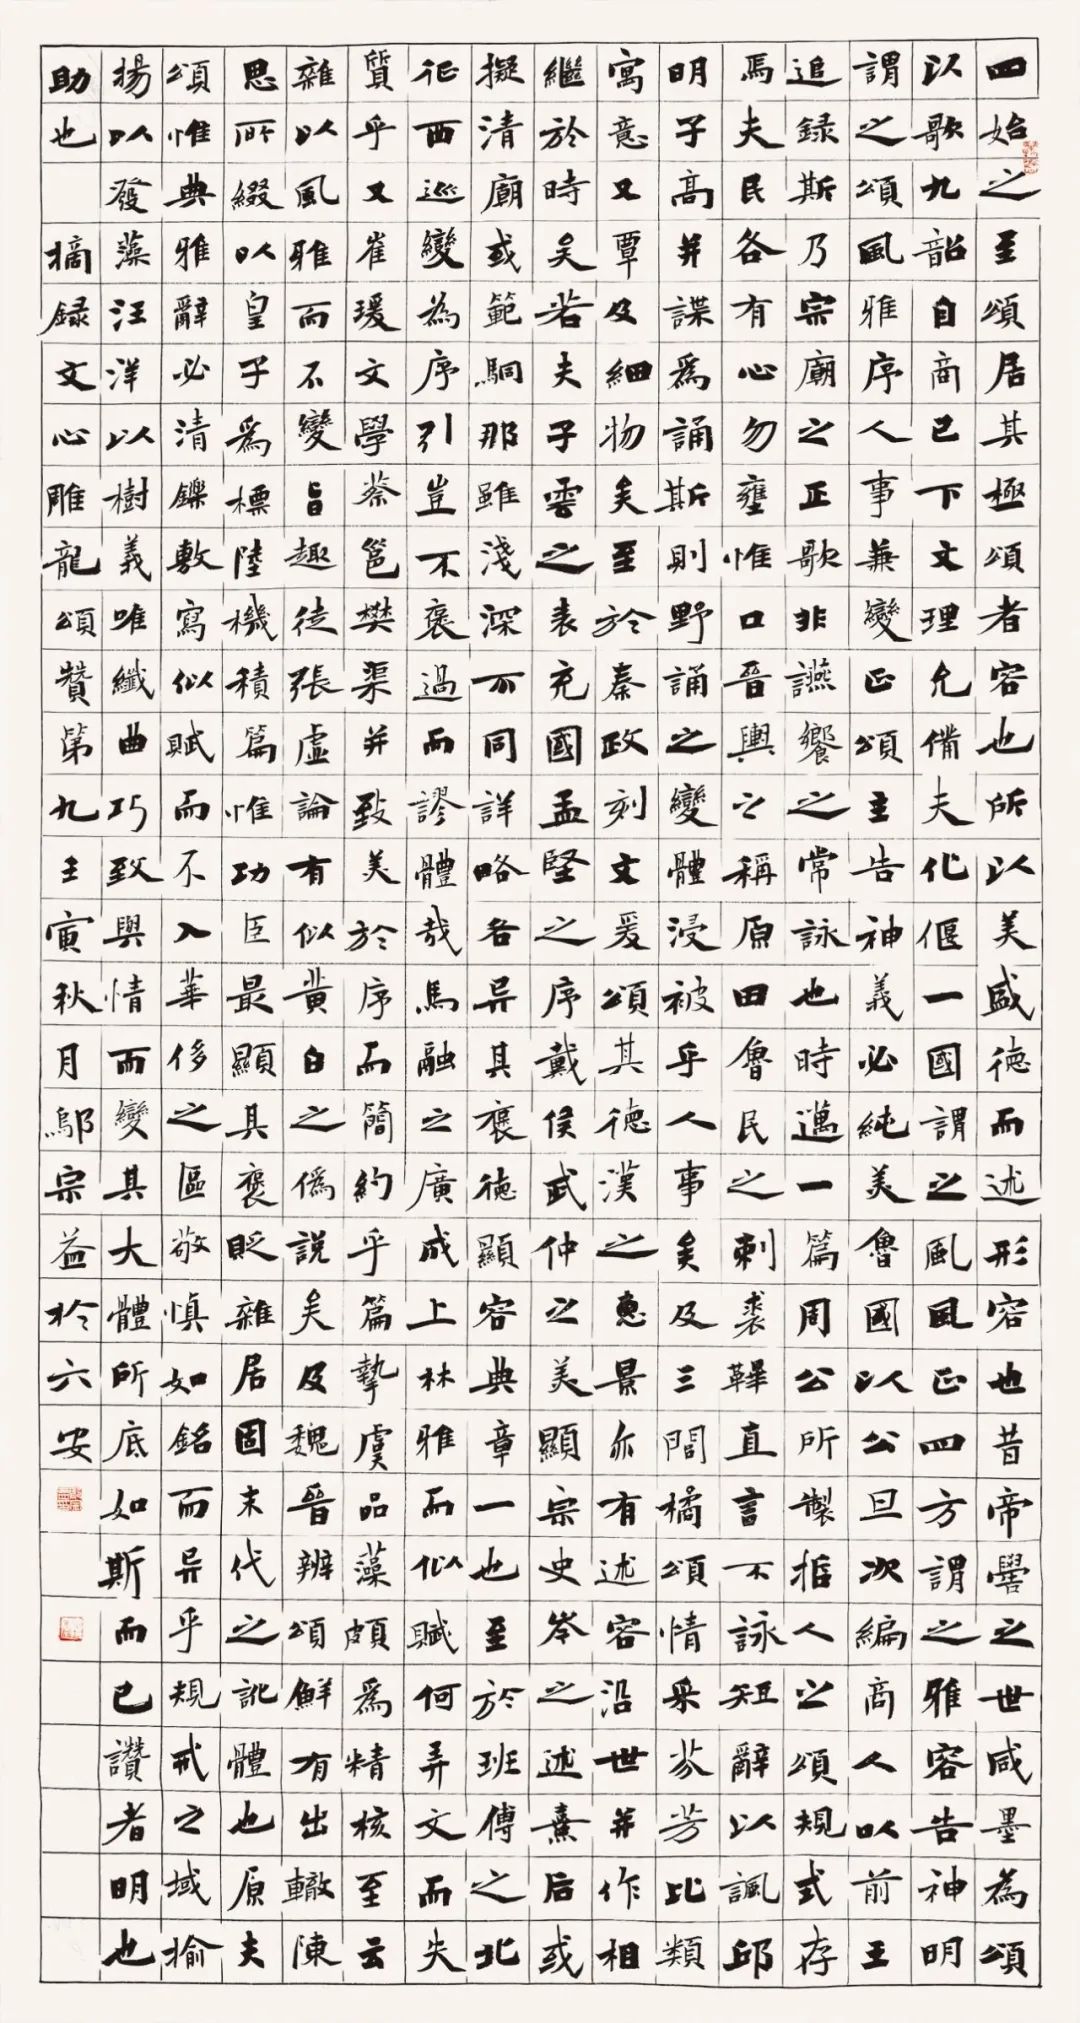 四始之至頌居其極頌者容也所以美盛德而述形容也昔帝嚳之世咸墨為頌
以歌九韶自商已下文理允備夫化偃一國謂之風風正四方謂之雅容告神明
謂之頌風雅序人事兼變正頌主告神義必純美魯國以公旦次編商人以前王
追録斯乃宗廟之正歌非讌饗之常詠也時邁一篇周公所製哲人之頌規式存
焉夫民各有心勿壅惟口晉輿之稱原田魯民之刺裘鞸直言不詠短辭以諷邱
明子高并諜爲誦斯則野誦之變體浸被乎人事矣及三閭橘頌情采芬芳比類
寓意又覃及細物矣至於秦政刻文爰頌其德漢之惠景亦有述容沿世并作相
繼於時矣若夫子雲之表充國孟堅之序戴侯武仲之美顯宗史岑之述熹后或
擬清廟或範駉那雖淺深不同詳略各异其褒德顯容典章一也至於班傅之北
征西巡變為序引豈不褒過而謬體哉馬融之廣成上林雅而似賦何弄文而失
質乎又崔瑗文學蔡邕樊渠并致美於序而簡約乎篇摯虞品藻頗爲精核至云
雜以風雅而不變旨趣徒張虛論有似黃白之偽說矣及魏晉辨頌鮮有出轍陳
思所綴以皇子爲標陸機積篇惟功臣最顯其褒貶雜居固末代之訛體也原夫
頌惟典雅辭必清鑠敷寫似賦而不入華侈之區敬慎如銘而异乎規戒之域揄
揚以發藻汪洋以樹義唯纖曲巧致與情而變其大體所底如斯而已讚者明也
助也 摘録文心雕龍頌贊第九壬寅秋月鄔宗益於六安